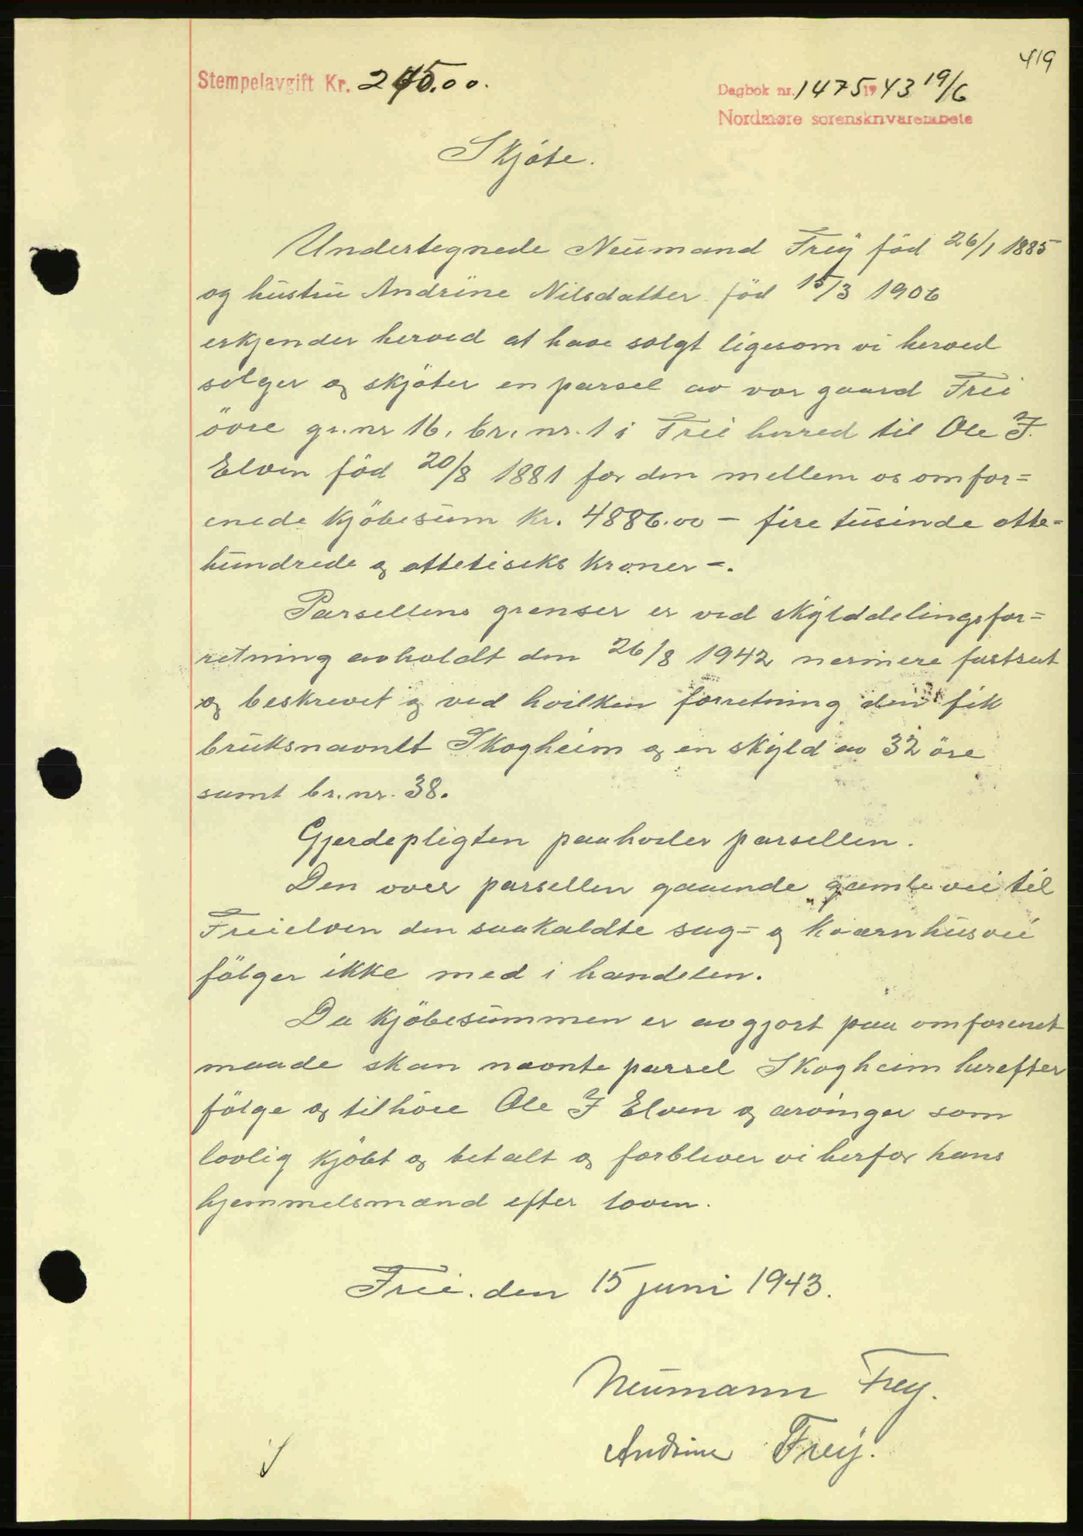 419
Stempelavgift Kr. 245.00.
Dagbok nr. 1475 19 43 19/6
Nordmøre sorenskriverembete
Skjøte.
Undertegnede Neumand Frey föd 26/1 1885
og hustru Andrine Nilsdatter föd 15/3 1906
erkjender herved at have solgt ligesom vi herved
selger og skjøter en parsel av vor gaard Frei
övre gr.nr 16. br. nr. 1 i Frei herred til Ole J.
Elven föd 20/8 1881 for den mellem os omfor=
enede Kjöbesum Kr. 4886.00 – fire tusinde otte=
hundrede og ottetiseks kroner –.
Parsellens grenser er ved skylddelingsfor=
retning avholdt den 26/8 1942 nermere fastsat
og beskrevet og ved hvilken forretning den fik
bruksnavnet Skogheim og en skyld av 32 öre
samt br. nr. 38.
Gjerdepligten paahviler parsellen.
Den over parsellen gaaende gamle vei til
Freielven den saakaldte sag= og Kværnhusvei
fölger ikke med i handelen.
Da Kjöbesummen er avgjort paa omforenet
maade skan nævnte parsel Skogheim herefter
fölge og tilhöre Ole J Elven og arvinger som
lovlig kjöbt og betalt og forbliver vi herfor hans
hjemmelsmænd efter loven.
Frei. den 15 juni 1943.
Neumann Frey.
Andrine Frey.